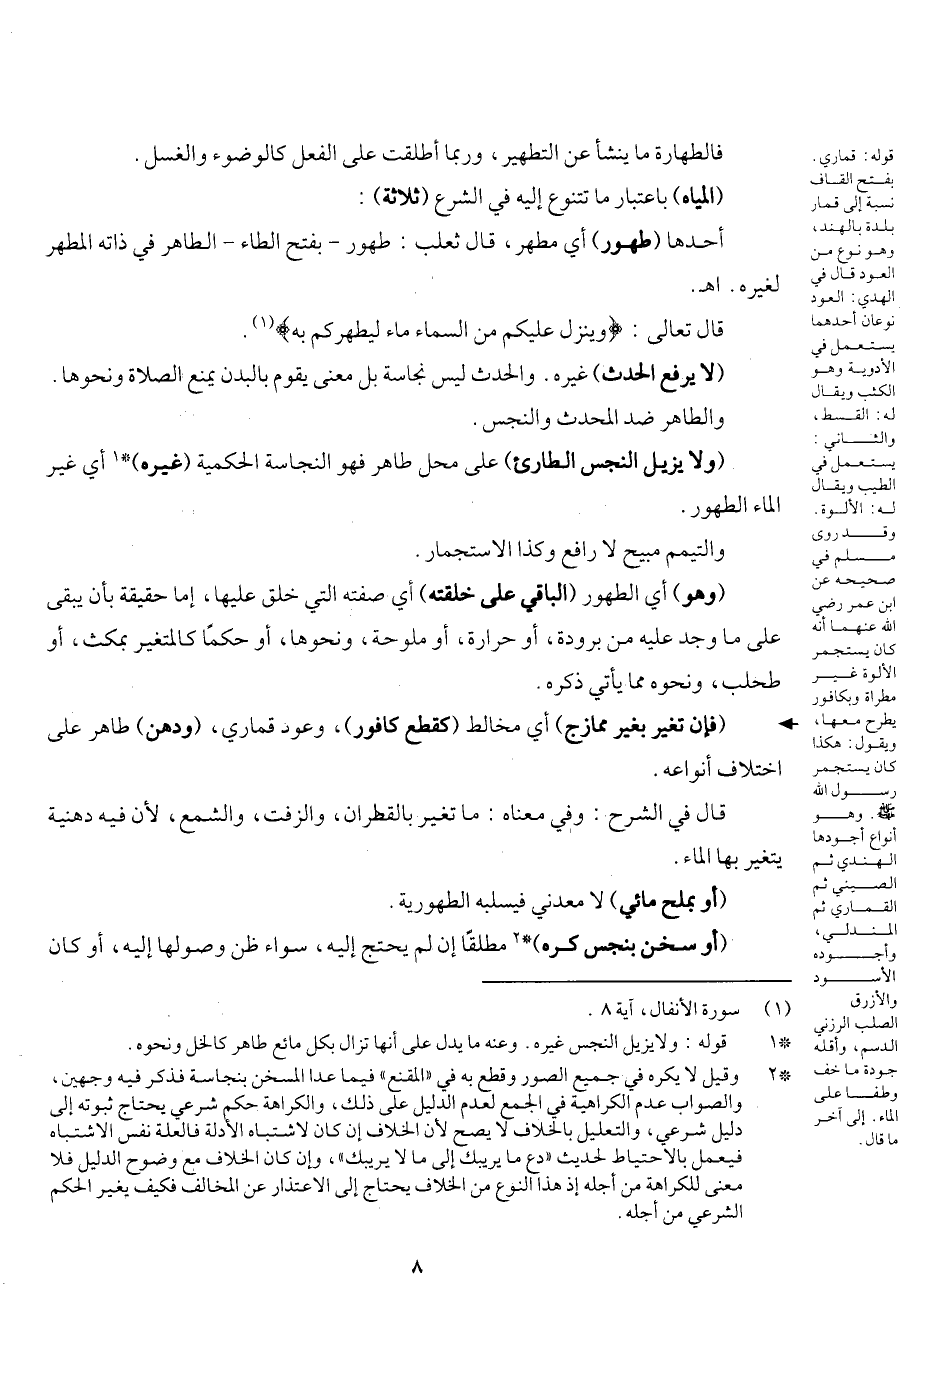 فالطهارة ما ينشأ عن التطهير، وربما أطلقت على الفعل كالوضوء والغسل.
(المياه) باعتبار ما تتنوع إليه في الشرع (ثلاثة) :
أحدها (طهور) أي مطهر، قال ثعلب : طهور - بفتح الطاء - الطاهر في ذاته المطهر
لغيره. اهـ.
قال تعالى : ﴿وينزل عليكم من السماء ماء ليطهركم به﴾(١).
(لا يرفع الحدث) غيره. والحدث ليس نجاسة بل معنى يقوم بالبدن يمنع الصلاة ونحوها.
والطاهر ضد المحدث والنجس.
(ولا يزيل النجس الطارئ) على محل طاهر فهو النجاسة الحكمية (غيره)*١ أي غير
الماء الطهور.
والتيمم مبيح لا رافع وكذا الاستجمار.
(وهو) أي الطهور (الباقي على خلقته) أي صفته التي خلق عليها، إما حقيقة بأن يبقى
على ما وجد عليه من برودة، أو حرارة، أو ملوحة، ونحوها، أو حكمًا كالمتغير بمكث، أو
طحلب، ونحوه مما يأتي ذكره.
(فإن تغير بغير ممازج) أي مخالط (كقطع كافور)، وعود قماري، (ودهن) طاهر على
اختلاف أنواعه.
قال في الشرح : وفي معناه : ما تغير بالقطران، والزفت، والشمع، لأن فيه دهنية
يتغير بها الماء.
(أو بملح مائي) لا معدني فيسلبه الطهورية.
(أو سخن بنجس كره)*٢ مطلقًا إن لم يحتج إليه، سواء ظن وصولها إليه، أو كان
قوله: قماري.
بفتح القاف
نسبة إلى قمار
بلدة بالهند،
وهو نوع من
العود قال في
الهدي: العود
نوعان أحدهما
يستعمل في
الأدوية وهو
الكثب ويقال
له: القسط،
والثاني :
يستعمل في
الطيب ويقال
له: الألوة.
وقد روى
مسلم في
صحيحه عن
ابن عمر رضي
الله عنهما أنه
كان يستجمر
الألوة غير
مطراة وبكافور
يطرح معها،
ويقول: هكذا
كان يستجمر
رسول الله
ﷺ. وهو
أنواع أجودها
الهندي ثم
الصيني ثم
القماري ثم
المندلي،
وأجوده
الأسود
والأزرق
الصلب الرزني
الدسم، وأقله
جودة ما خف
وطفا على
الماء. إلى آخر
ما قال.
(١) سورة الأنفال، آية ٨ .
*١ قوله : ولايزيل النجس غيره. وعنه ما يدل على أنها تزال بكل مائع طاهر كالخل ونحوه.
*٢ وقيل لا يكره في جميع الصور وقطع به في «المقنع» فيما عدا المسخن بنجاسة فذكر فيه وجهين،
والصواب عدم الكراهية في الجمع لعدم الدليل على ذلك، والكراهة حكم شرعي يحتاج ثبوته إلى
دليل شرعي، والتعليل بالخلاف لا يصح لأن الخلاف إن كان لاشتباه الأدلة فالعلة نفس الاشتباه
فيعمل بالاحتياط لحديث «دع ما يريبك إلى ما لا يريبك»، وإن كان الخلاف مع وضوح الدليل فلا
معنى للكراهة من أجله إذ هذا النوع من الخلاف يحتاج إلى الاعتذار عن المخالف فكيف يغير الحكم
الشرعي من أجله.
٨